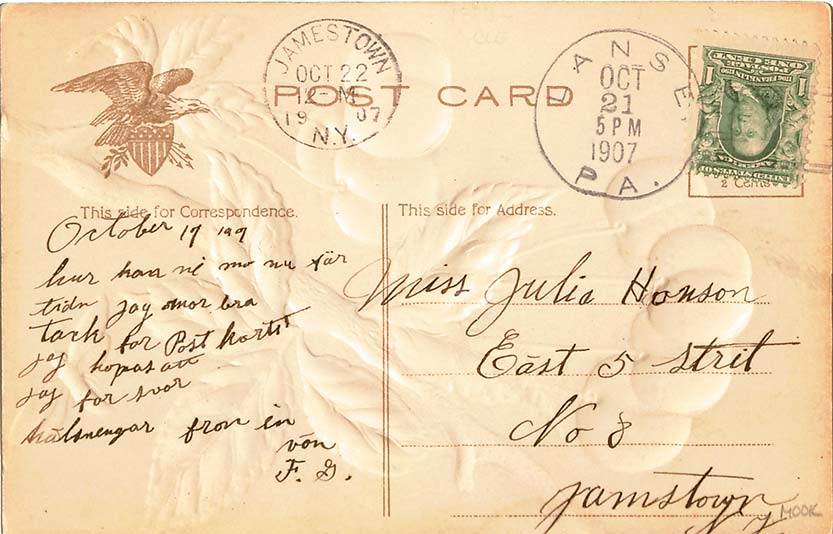 JAMESTOWN
OCT 22
12-M
1907
N.Y.
POST CARD
LANSE
OCT
21
5 PM
1907
PA.
ONE CENT
1 1
2 Cents
This side for Correspondence.
October 17 190
hur kan ni mo nu för
tidn jag mor bra
tack for Post kortit
jag hopas att
jag for svar
hälsnengar fron en
vön
F. G.
This side for Address.
Miss Julia Honson
East 5 Strit
No 8
Jamstown
N Y
MOOK